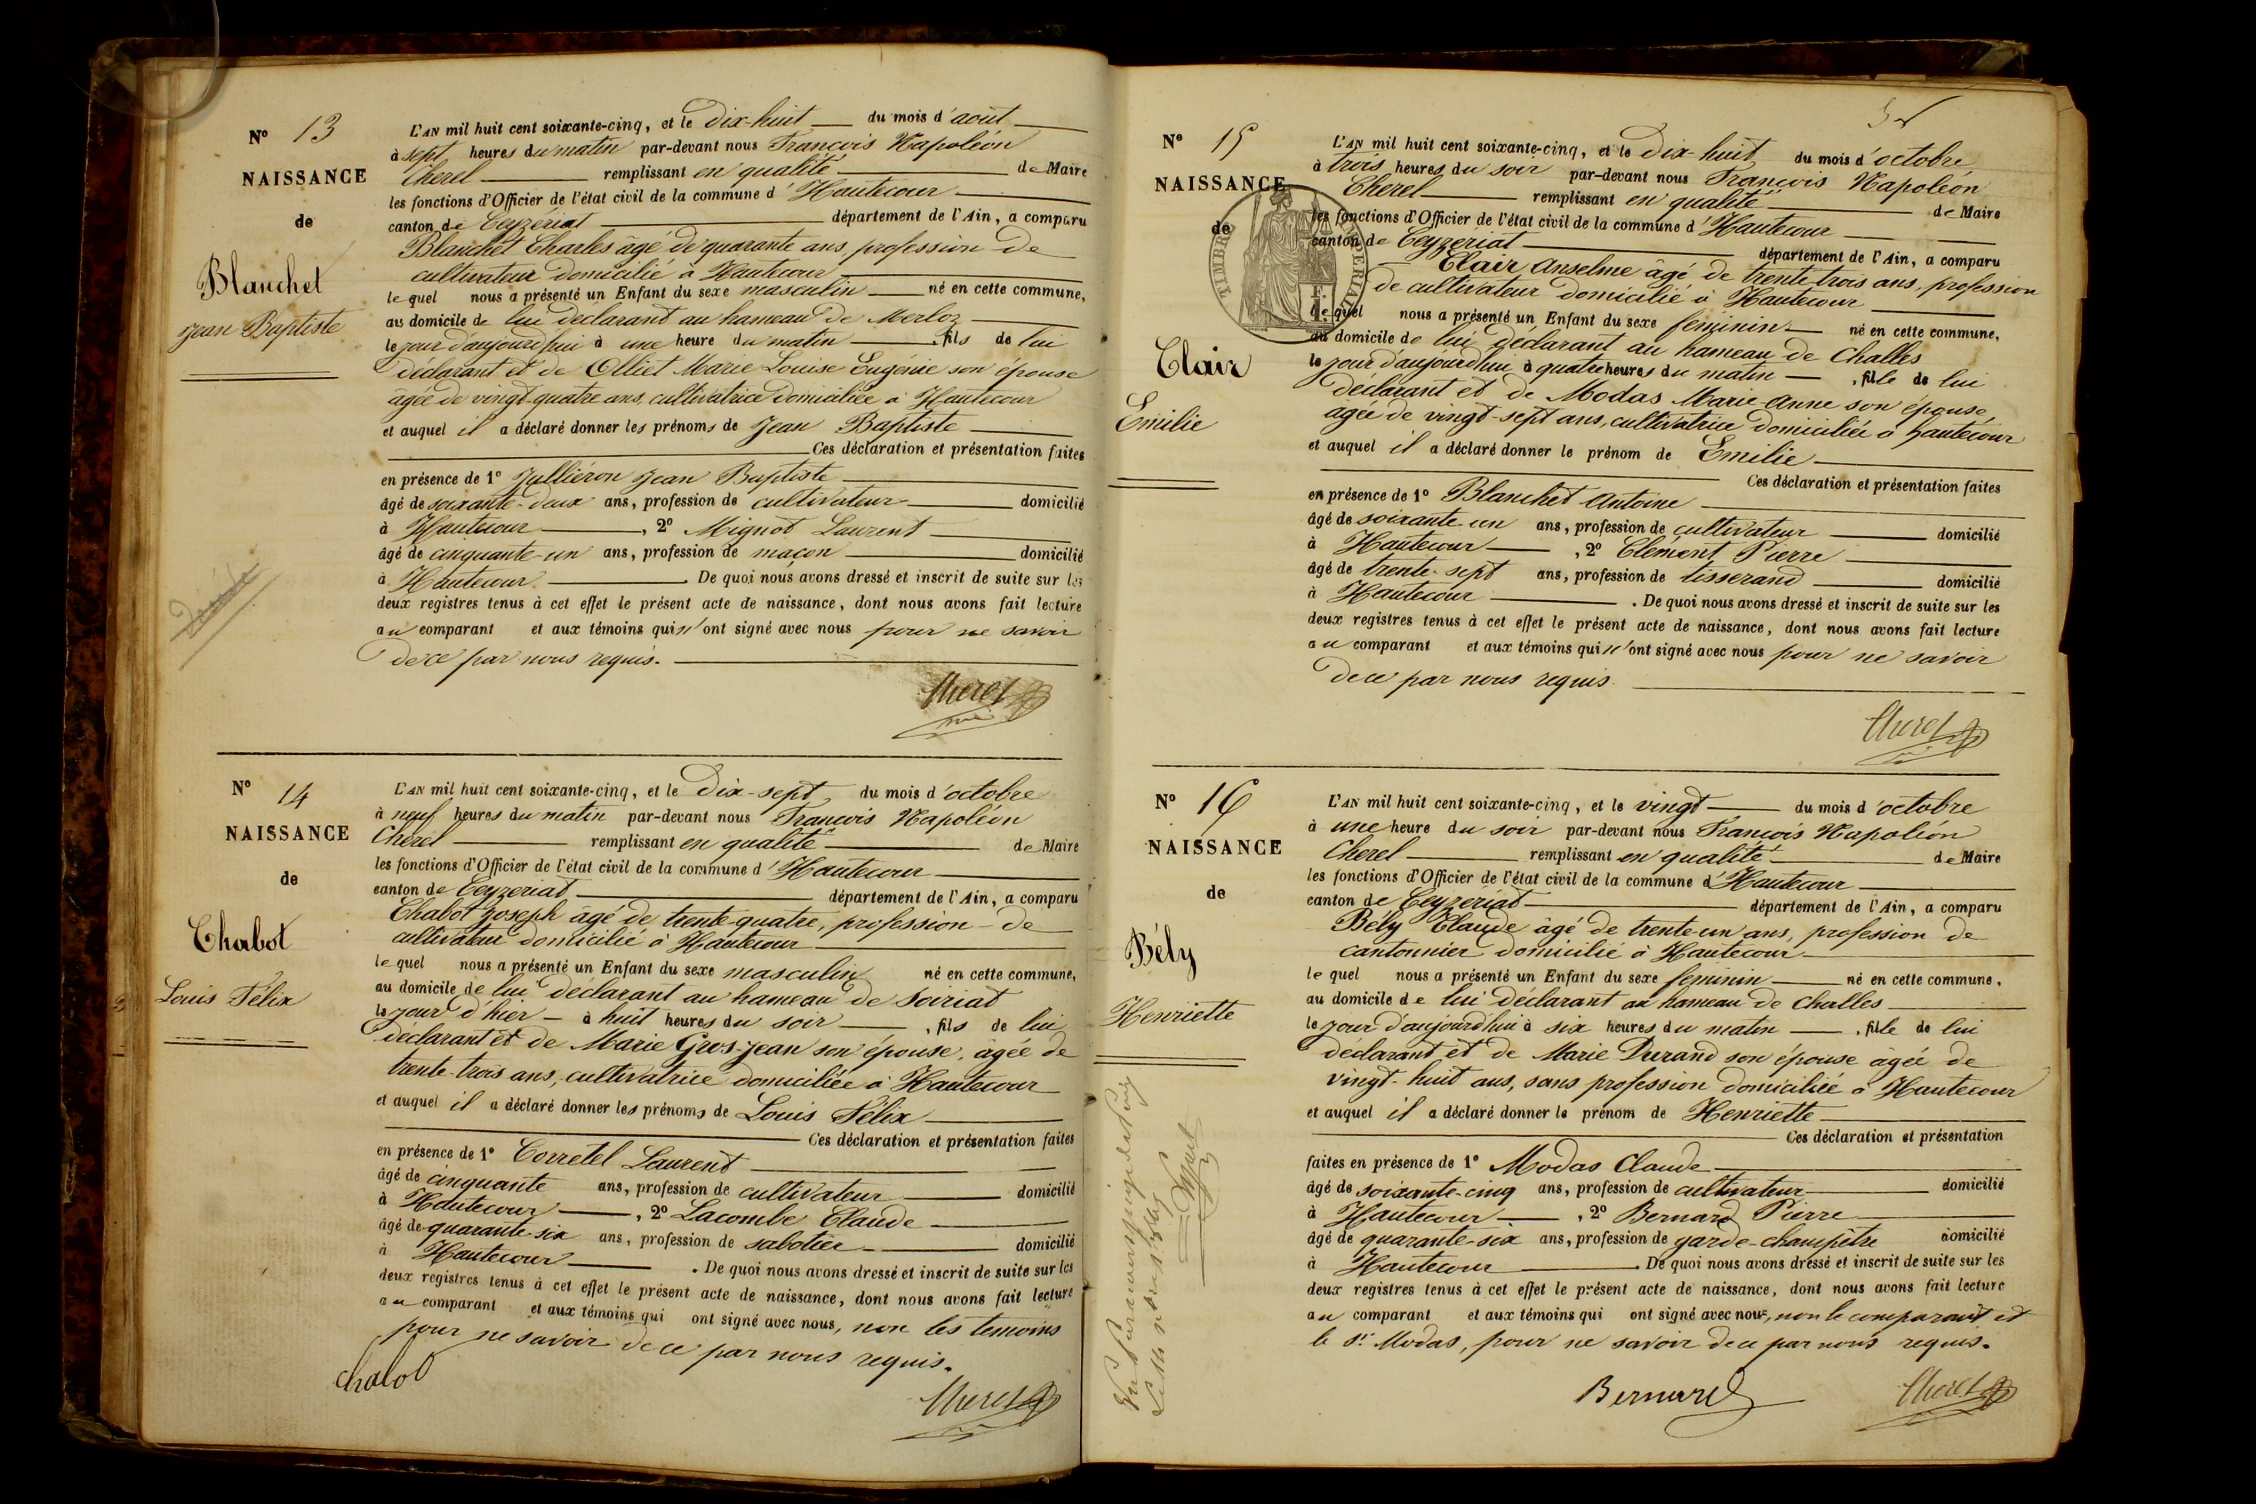 N° 13
NAISSANCE
de
Blanchet
Jean Baptiste
L'AN mil huit cent soixante-cinq, et le dix-huit du mois d'août
à sept heures du matin par-devant nous François Napoléon
Cherel remplissant en qualité de Maire
les fonctions d'Officier de l'état civil de la commune d'Hautecour
canton de Ceyzériat département de l'Ain, a comparu
Blanchet Charles âgé de quarante ans, profession de
cultivateur domicilié à Hautecour
lequel nous a présenté un Enfant du sexe masculin né en cette commune,
au domicile de lui déclarant au hameau de Merloz
le jour d'aujourd'hui à une heure du matin, fils de lui
déclarant et de Olliet Marie Louise Eugénie son épouse
agée de vingt-quatre ans, cultivatrice domiciliée à Hautecour
et auquel il a déclaré donner les prénoms de Jean Baptiste
Ces déclaration et présentation faites
en présence de 1° Julliéron Jean Baptiste
âgé de soixante-deux ans, profession de cultivateur domicilié
à Hautecour, 2° Mignot Laurent
âgé de cinquante-un ans, profession de maçon domicilié
à Hautecour. De quoi nous avons dressé et inscrit de suite sur les
deux registres tenus à cet effet le présent acte de naissance, dont nous avons fait lecture
au comparant et aux témoins qui n'ont signé avec nous pour ne savoir
de ce par nous requis.
Cherel
N° 14
NAISSANCE
de
Chabot
Louis Félix
L'AN mil huit cent soixante-cinq, et le dix-sept du mois d'octobre
à neuf heures du matin par-devant nous François Napoléon
Cherel remplissant en qualité de Maire
les fonctions d'Officier de l'état civil de la commune d'Hautecour
canton de Ceyzeriat département de l'Ain, a comparu
Chabot Joseph âgé de trente-quatre, profession de
cultivateur domicilié à Hautecour
lequel nous a présenté un Enfant du sexe masculin né en cette commune,
au domicile de lui déclarant au hameau de Soiriat
le jour d'hier à huit heures du soir, fils de lui
déclarant et de Marie Gros-Jean son épouse, âgée de
trente-trois ans, cultivatrice domiciliée à Hautecour
et auquel il a déclaré donner les prénoms de Louis Félix
Ces déclaration et présentation faites
en présence de 1° Corretel Laurent
âgé de cinquante ans, profession de cultivateur domicilié
à Hautecour, 2° Lacombe Claude
âgé de quarante-six ans, profession de sabotier domicilié
à Hautecour. De quoi nous avons dressé et inscrit de suite sur les
deux registres tenus à cet effet le présent acte de naissance, dont nous avons fait lecture
au comparant et aux témoins qui ont signé avec nous, non les témoins
pour ne savoir de ce par nous requis.
Chabot
Cherel
N° 15
NAISSANCE
de
TIMBRE IMPERIAL
Clair
Emilie
L'AN mil huit cent soixante-cinq, et le dix-huit du mois d'octobre
à trois heures du soir par-devant nous François Napoléon
Cherel remplissant en qualité de Maire
les fonctions d'Officier de l'état civil de la commune d'Hautecour
canton de Ceyzeriat département de l'Ain, a comparu
Clair Anselme âgé de trente-trois ans, profession
de cultivateur domicilié à Hautecour
lequel nous a présenté un Enfant du sexe feminin né en cette commune,
au domicile de lui déclarant au hameau de Challes
le jour d'aujourdhui à quatre heures du matin, fille de lui
déclarant et de Modas Marie-Anne son épouse,
âgée de vingt-sept ans, cultivatrice domiciliée à hautecour
et auquel il a déclaré donner le prénom de Emilie
Ces déclaration et présentation faites
en présence de 1° Blanchet Antoine
âgé de soixante-un ans, profession de cultivateur domicilié
à Hautecour, 2° Clément Pierre
âgé de trente-sept ans, profession de tisserand domicilié
à Hautecour. De quoi nous avons dressé et inscrit de suite sur les
deux registres tenus à cet effet le présent acte de naissance, dont nous avons fait lecture
au comparant et aux témoins qui n'ont signé avec nous pour ne savoir
de ce par nous requis.
Cherel
N° 16
NAISSANCE
de
Bély
Henriette
L'AN mil huit cent soixante-cinq, et le vingt du mois d'octobre
à une heure du soir par-devant nous François Napoléon
Cherel remplissant en qualité de Maire
les fonctions d'Officier de l'état civil de la commune d'Hautecour
canton de Ceyzériat département de l'Ain, a comparu
Bély Claude âgé de trente-un ans, profession de
cantonnier domicilié à Hautecour
lequel nous a présenté un Enfant du sexe feminin né en cette commune,
au domicile de lui déclarant au hameau de Challes
le jour d'aujourd'hui à six heures du matin, fille de lui
déclarant et de Marie Durand son épouse âgée de
vingt-huit ans, sans profession domiciliée à Hautecour
et auquel il a déclaré donner le prénom de Henriette
Ces déclaration et présentation
faites en présence de 1° Modas Claude
âgé de soixante-cinq ans, profession de cultivateur domicilié
à Hautecour, 2° Bernard Pierre
âgé de quarante-six ans, profession de garde-champêtre domicilié
à Hautecour. De quoi nous avons dressé et inscrit de suite sur les
deux registres tenus à cet effet le présent acte de naissance, dont nous avons fait lecture
au comparant et aux témoins qui ont signé avec nous, non le comparant et
le Sr. Modas, pour ne savoir de ce par nous requis.
Bernard
Cherel